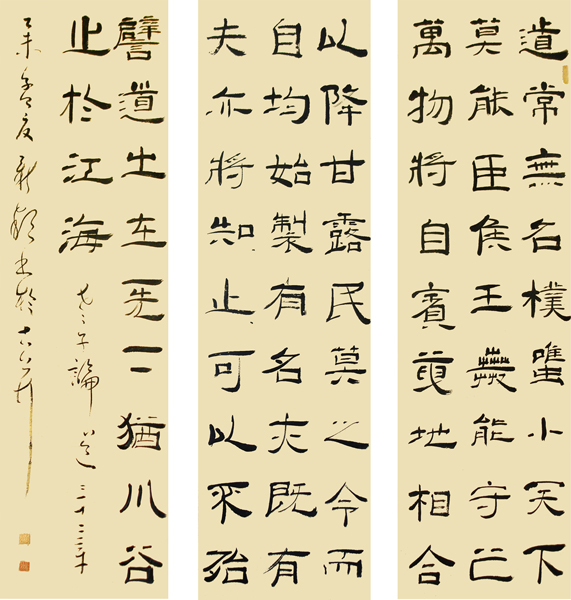 道常無名樸雖小天下
莫能臣侯王若能守之
萬物將自賓天地相合
以降甘露民莫之令而
自均始製有名亦既有
夫亦將知止可以不殆
譬道之在天下猶川谷
之於江海
老子論道三十二章
乙未 書於